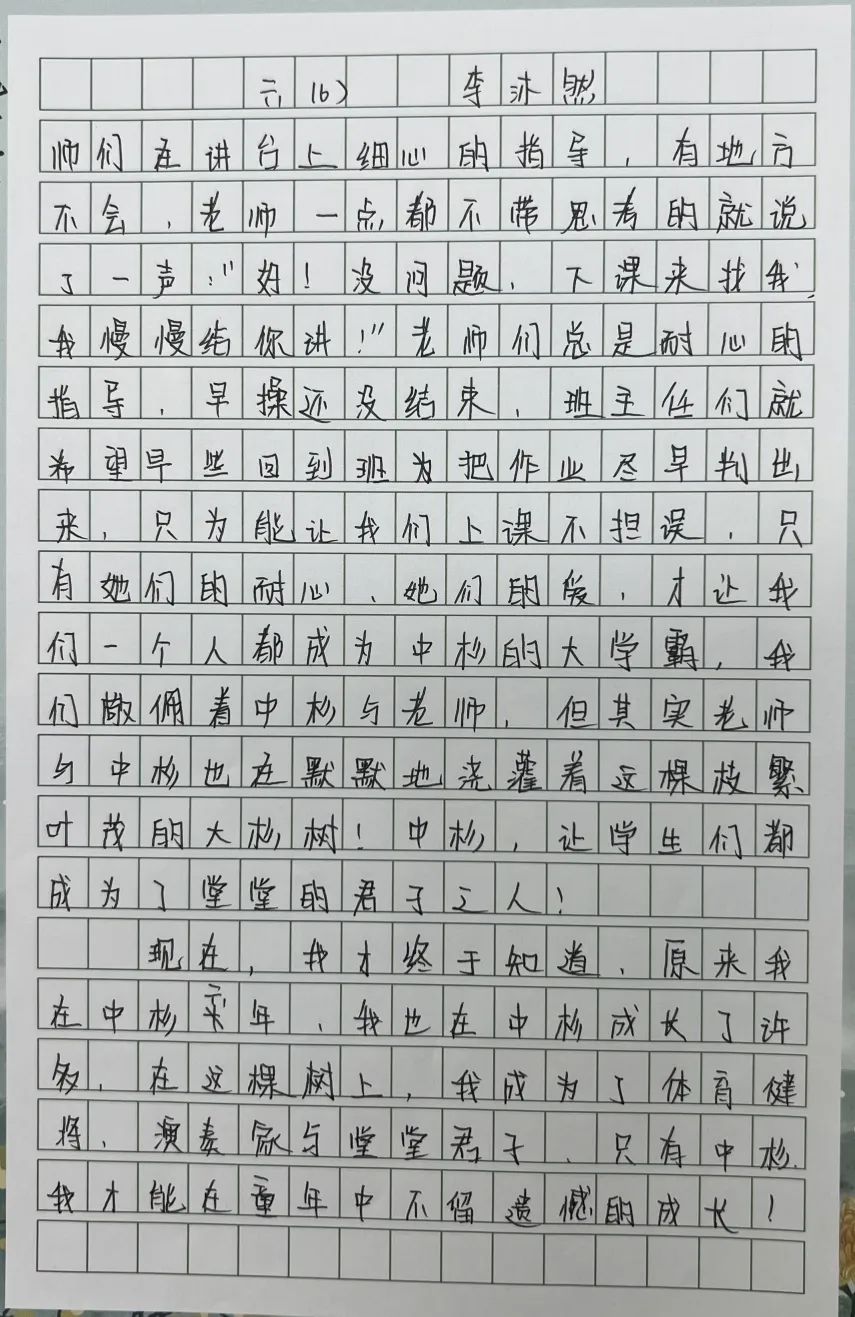 六(6) 李沐然
师们在讲台上细心的指导，有地方
不会，老师一点都不带思考的就说
了一声："好！没问题，下课来找我，
我慢慢给你讲！"老师们总是耐心的
指导，早操还没结束，班主任们就
希望早些回到班为把作业尽早判出
来，只为能让我们上课不担误，只
有她们的耐心、她们的爱，才让我
们一个人都成为中杉的大学霸，我
们敬佣着中杉与老师，但其实老师
与中杉也在默默地浇灌着这棵枝繁
叶茂的大杉树！中杉，让学生们都
成为了堂堂的君子之人！
现在，我才终于知道，原来我
在中杉六年，我也在中杉成长了许
多，在这棵树上，我成为了体育健
将、演奏家与堂堂君子，只有中杉，
我才能在童年中不留遗憾的成长！